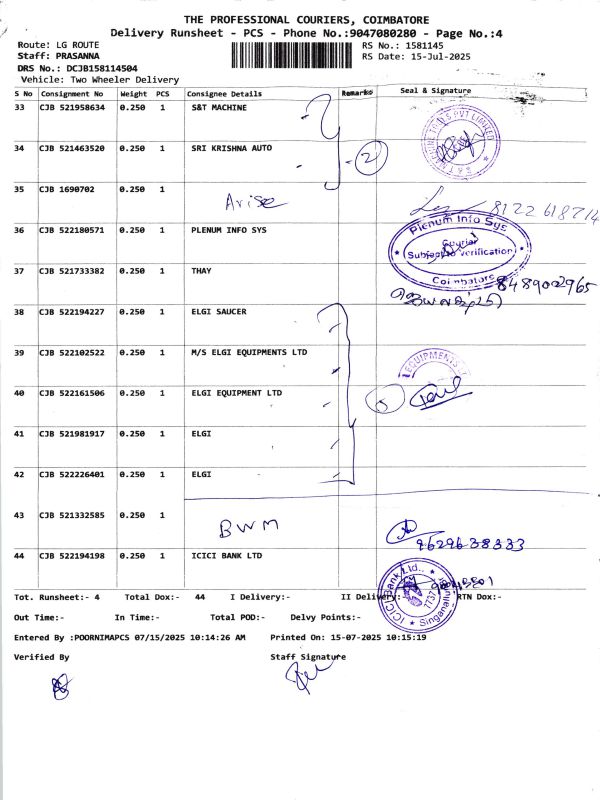 THE PROFESSIONAL COURIERS, COIMBATORE
Delivery Runsheet - PCS - Phone No.:9047080280 - Page No.:4
Route: LG ROUTE
RS No.: 1581145
Staff: PRASANNA
RS Date: 15-Jul-2025
DRS No.: DCJB158114504
Vehicle: Two Wheeler Delivery
S No Consignment No Weight PCS Consignee Details Remarks Seal & Signature
33 CJB 521958634 0.250 1 S&T MACHINE
34 CJB 521463520 0.250 1 SRI KRISHNA AUTO
2
35 CJB 1690702 0.250 1
Arise
8122618714
36 CJB 522180571 0.250 1 PLENUM INFO SYS
Plenum Info Sys
Courier
Subject to verification
Coimbatore
37 CJB 521733382 0.250 1 THAY
8489002965
38 CJB 522194227 0.250 1 ELGI SAUCER
39 CJB 522102522 0.250 1 M/S ELGI EQUIPMENTS LTD
EQUIPMENTS
40 CJB 522161506 0.250 1 ELGI EQUIPMENT LTD
5
41 CJB 521981917 0.250 1 ELGI
42 CJB 522226401 0.250 1 ELGI
43 CJB 521332585 0.250 1
BWM
9629638333
44 CJB 522194198 0.250 1 ICICI BANK LTD
ICICI Bank Ltd., Singanallur
Tot. Runsheet:- 4 Total Dox:- 44 I Delivery:- II Delivery:- RTN Dox:-
Out Time:- In Time:- Total POD:- Delvy Points:-
Entered By :POORNIMAPCS 07/15/2025 10:14:26 AM Printed On: 15-07-2025 10:15:19
Verified By Staff Signature